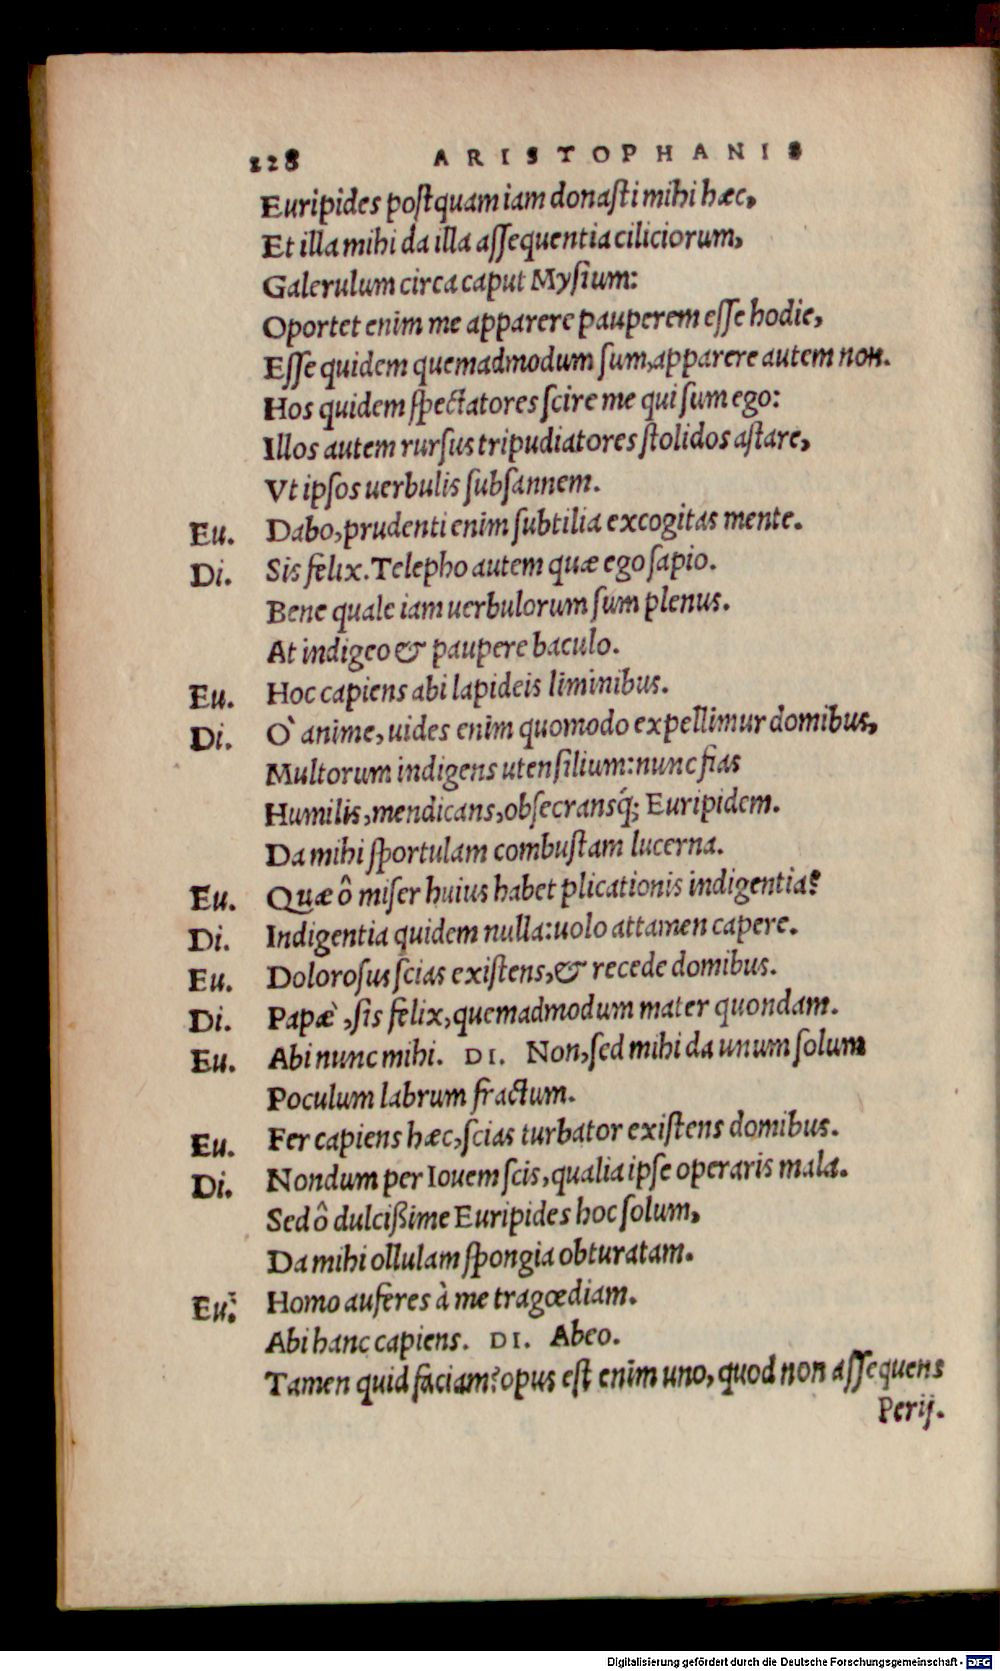 228 ARISTOPHANIS
Euripides poſtquam iam donaſti mihi hæc,
Et illa mihi da illa aſſequentia ciliciorum,
Galerulum circa caput Myſium:
Oportet enim me apparere pauperem eſſe hodie,
Eſſe quidem quemadmodum ſum, apparere autem non.
Hos quidem ſpectatores ſcire me qui ſum ego:
Illos autem rurſus tripudiatores ſtolidos aſtare,
Vt ipſos uerbulis ſubſannem.
Eu. Dabo, prudenti enim ſubtilia excogitas mente.
Di. Sis felix. Telepho autem quæ ego ſapio.
Bene quale iam uerbulorum ſum plenus.
At indigeo & paupere baculo.
Eu. Hoc capiens abi lapideis liminibus.
Di. Ò anime, uides enim quomodo expellimur domibus,
Multorum indigens utenſilium: nunc fias
Humilis, mendicans, obſecransq́; Euripidem.
Da mihi ſportulam combuſtam lucerna.
Eu. Quæ ô miſer huius habet plicationis indigentia?
Di. Indigentia quidem nulla: uolo attamen capere.
Eu. Doloroſus ſcias exiſtens, & recede domibus.
Di. Papæ̀, ſis felix, quemadmodum mater quondam.
Eu. Abi nunc mihi. DI. Non, ſed mihi da unum ſolum
Poculum labrum fractum.
Eu. Fer capiens hæc, ſcias turbator exiſtens domibus.
Di. Nondum per Iouem ſcis, qualia ipſe operaris mala.
Sed ô dulcißime Euripides hoc ſolum,
Da mihi ollulam ſpongia obturatam.
Eu. Homo auferes à me tragœdiam.
Abi hanc capiens. DI. Abeo.
Tamen quid faciam? opus eſt enim uno, quod non aſſequens
Perij.
Digitalisierung gefördert durch die Deutsche Forschungsgemeinschaft - DFG